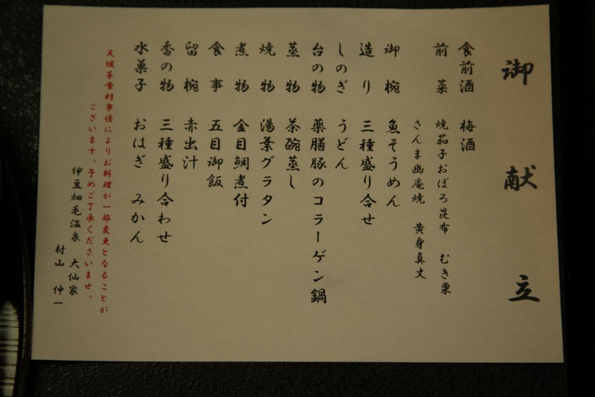 御献立
食前酒 梅酒
前菜 焼茄子おぼろ昆布 むき栗
さんま幽庵焼 黄身真丈
御椀 魚そうめん
造り 三種盛り合せ
しのぎ うどん
台の物 薬膳豚のコラーゲン鍋
蒸物 茶碗蒸し
焼物 湯葉グラタン
煮物 金目鯛煮付
食事 五目御飯
留椀 赤出汁
香の物 三種盛り合わせ
水菓子 おはぎ みかん
天候等食材事情によりお料理が一部変更となることが
ございます。予めご了承くださいませ。
伊豆畑毛温泉 大仙家
村山 伸一